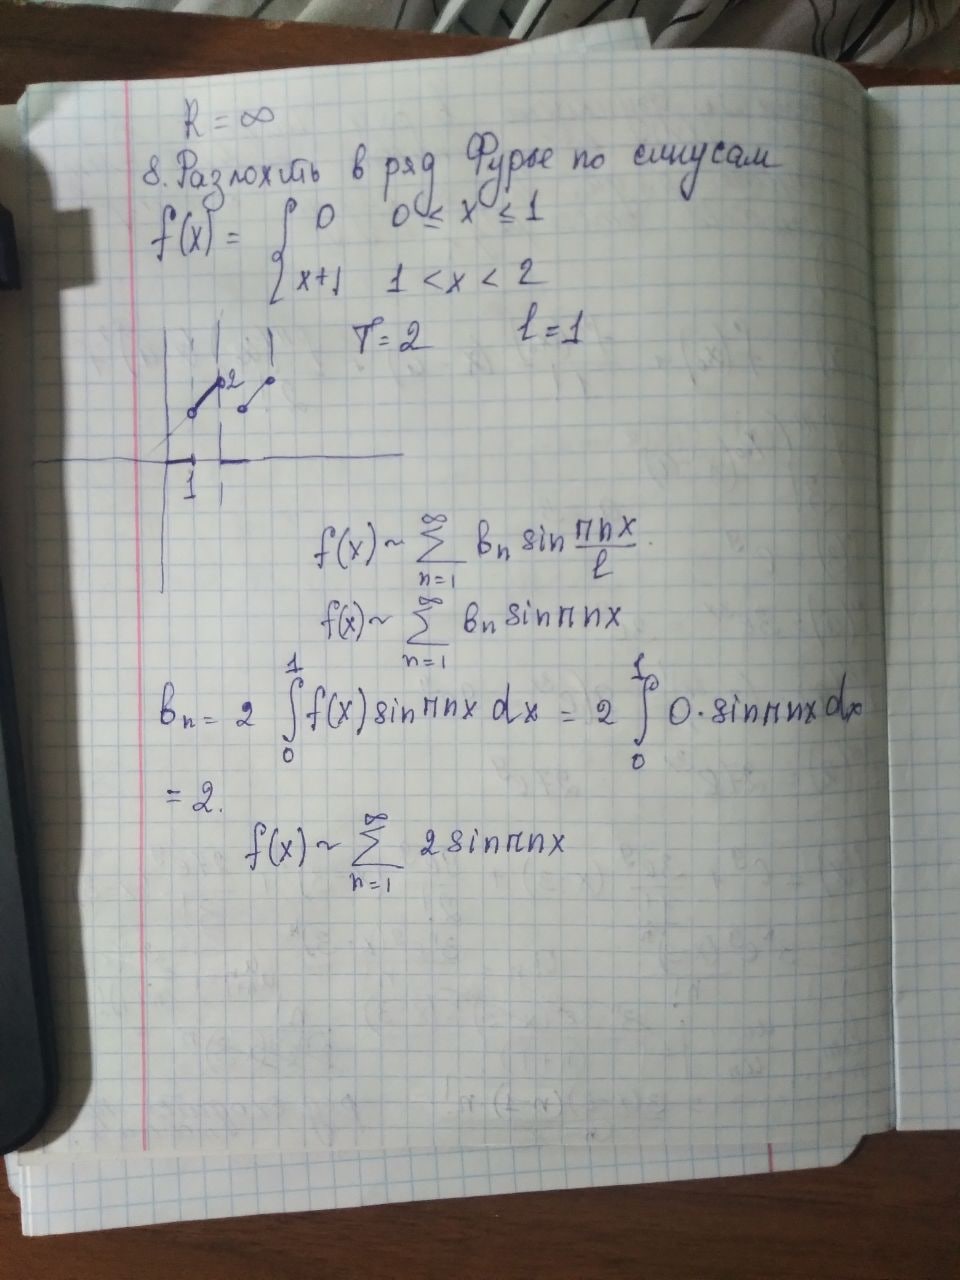 R = ∞
8. Разложить в ряд Фурье по синусам
f(x) = { 0 0 ≤ x ≤ 1
x+1 1 < x < 2
T = 2 l = 1
2
1
f(x) ~ ∑_{n=1}^{∞} bₙ sin πnx/l
f(x) ~ ∑_{n=1}^{∞} bₙ sin πnx
bₙ = 2 ∫_0^1 f(x) sin πnx dx = 2 ∫_0^1 0 · sin πnx dx
= 2.
f(x) ~ ∑_{n=1}^{∞} 2 sin πnx